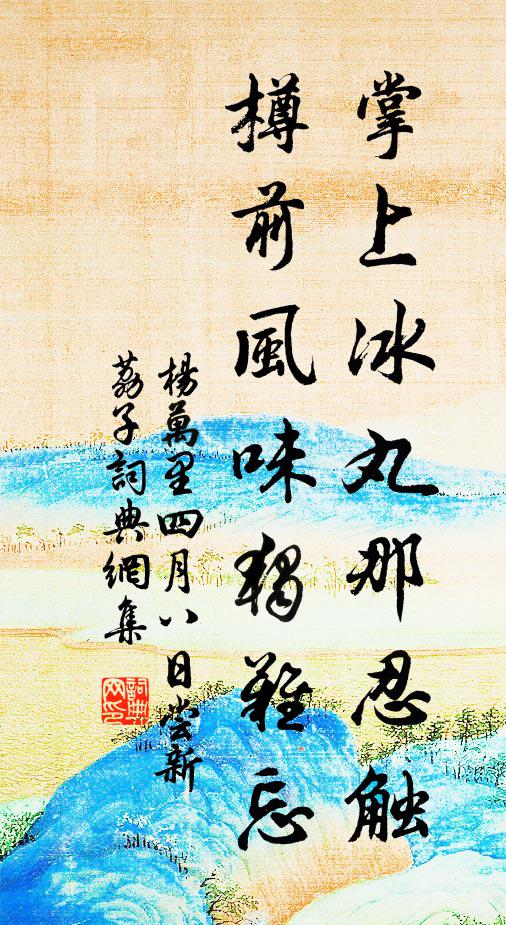 掌上冰丸那忍觸
樽前風味獨難忘
楊萬里四月八日嘗新
荔子詞典網集
詞典网印